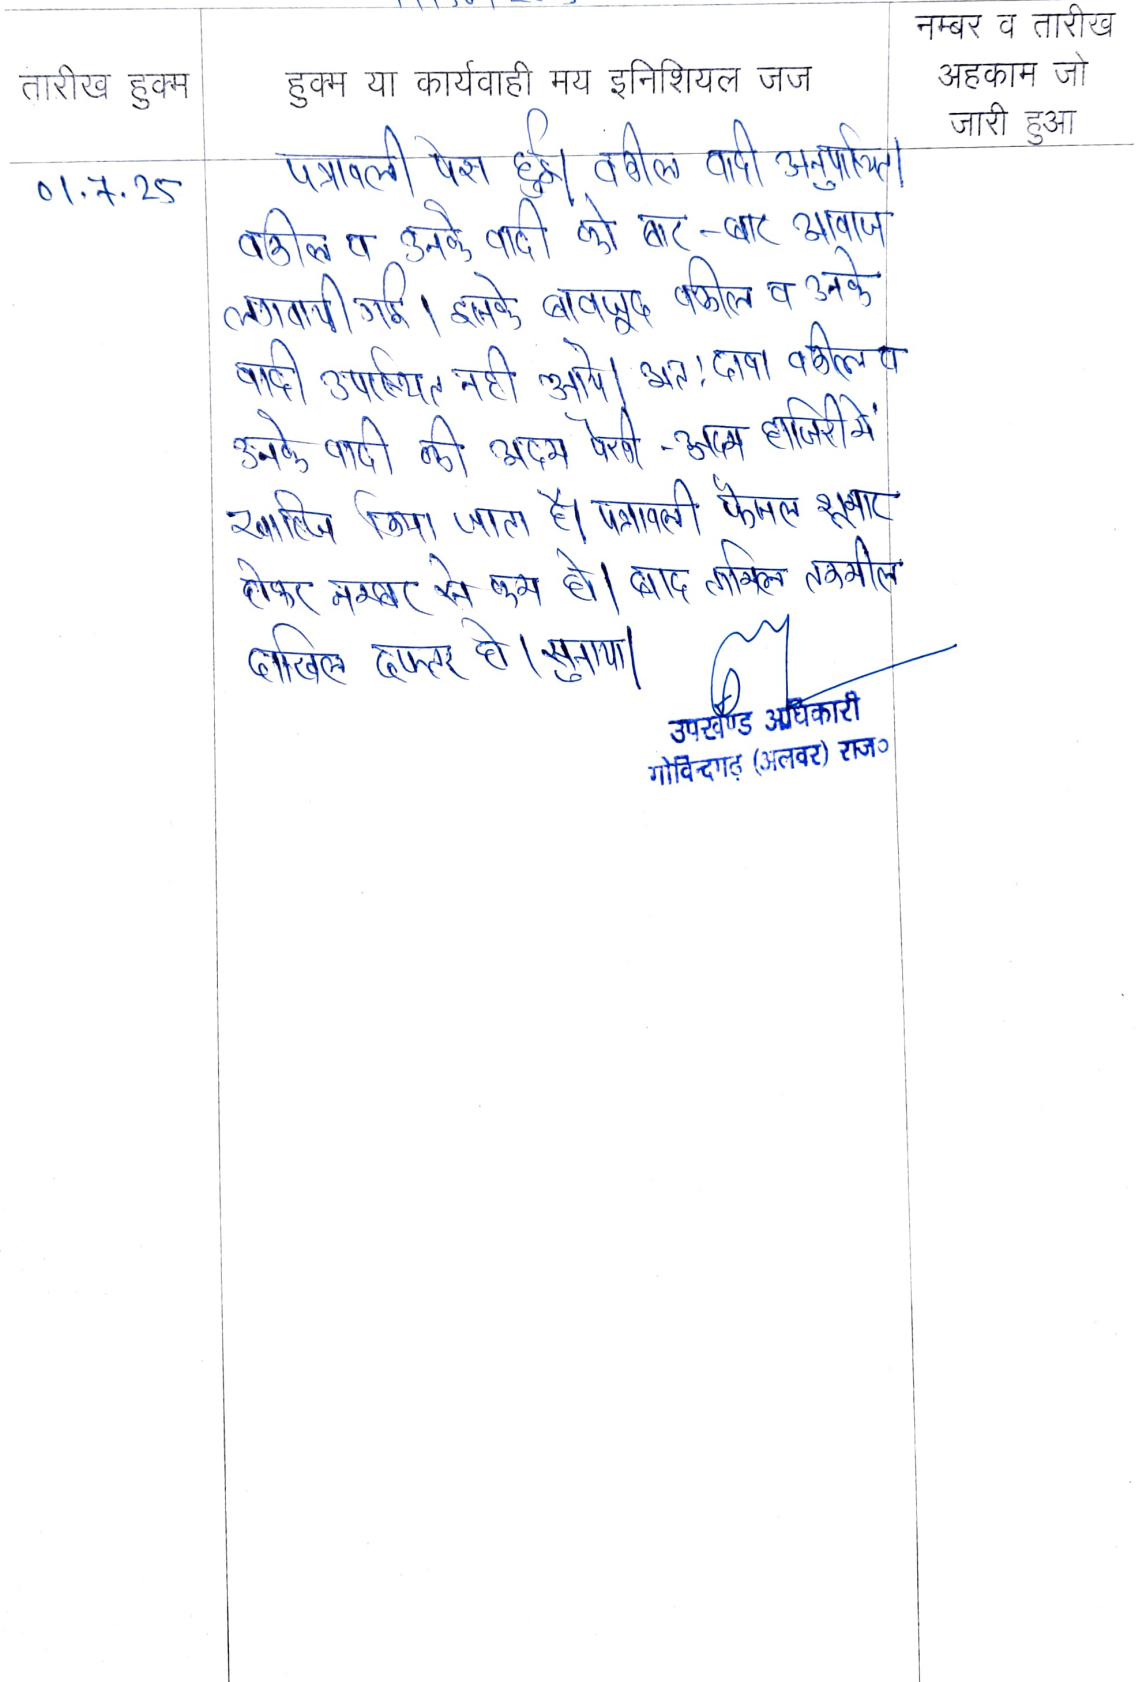 तारीख हुक्म
हुक्म या कार्यवाही मय इनिशियल जज
नम्बर व तारीख
अहकाम जो
जारी हुआ
01.7.25
पत्रावली पेश हुई। वकील वादी अनुपस्थित।
वकील व उनके वादी को बार-बार आवाज
लगवायी गई। इसके बावजूद वकील व उनके
वादी उपस्थित नही आये। अत: दावा वकील व
उनके वादी की अदम पैरवी-अदम हाजिरी में
खारिज किया जाता है। पत्रावली फैसल शुमार
होकर नम्बर से कम हो। बाद तामिल तकमील
दाखिल दफ्तर हो। सुनाया।
उपखण्ड अधिकारी
गोविन्दगढ़ (अलवर) राज०